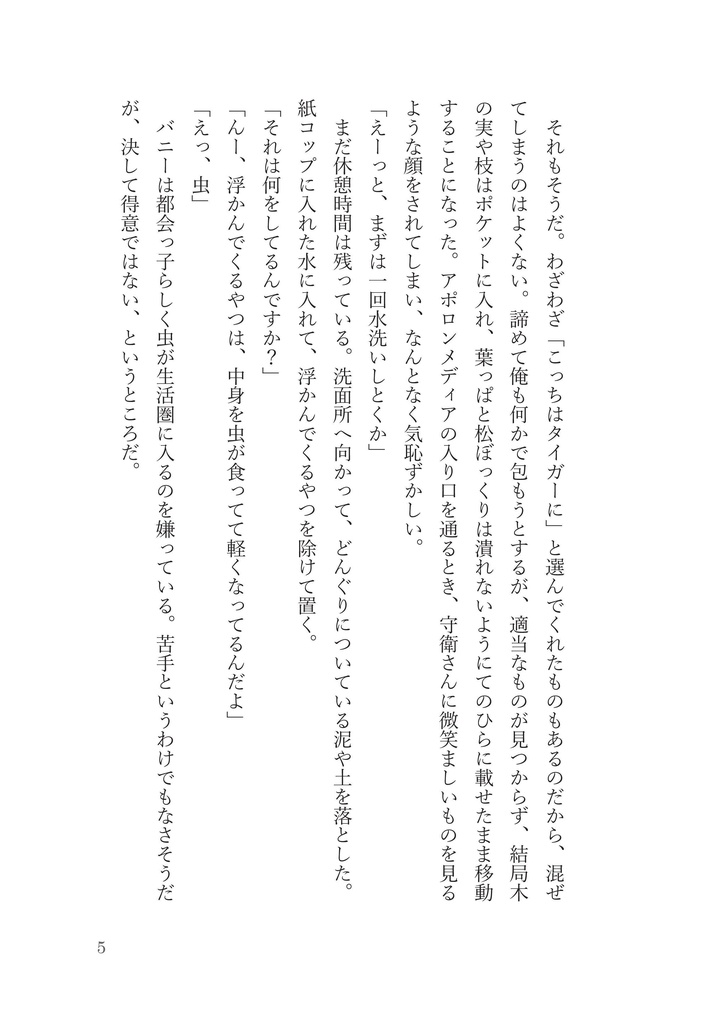 それもそうだ。わざわざ「こっちはタイガーに」と選んでくれたものもあるのだから、混ぜ
てしまうのはよくない。諦めて俺も何かで包もうとするが、適当なものが見つからず、結局木
の実や枝はポケットに入れ、葉っぱと松ぼっくりは潰れないようにてのひらに載せたまま移動
することになった。アポロンメディアの入り口を通るとき、守衛さんに微笑ましいものを見る
ような顔をされてしまい、なんとなく気恥ずかしい。
「えーっと、まずは一回水洗いしとくか」
まだ休憩時間は残っている。洗面所へ向かって、どんぐりについている泥や土を落とした。
紙コップに入れた水に入れて、浮かんでくるやつを除けて置く。
「それは何をしてるんですか？」
「んー、浮かんでくるやつは、中身を虫が食ってて軽くなってるんだよ」
「えっ、虫」
バニーは都会っ子らしく虫が生活圏に入るのを嫌っている。苦手というわけでもなさそうだ
が、決して得意ではない、というところだ。
5